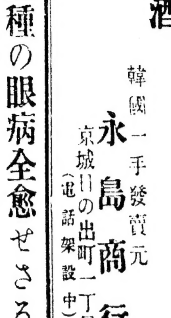 酒
韓國一手發賣元
永島商行
京城日の出町一丁
(電話架設中)
種の眼病全愈せさる